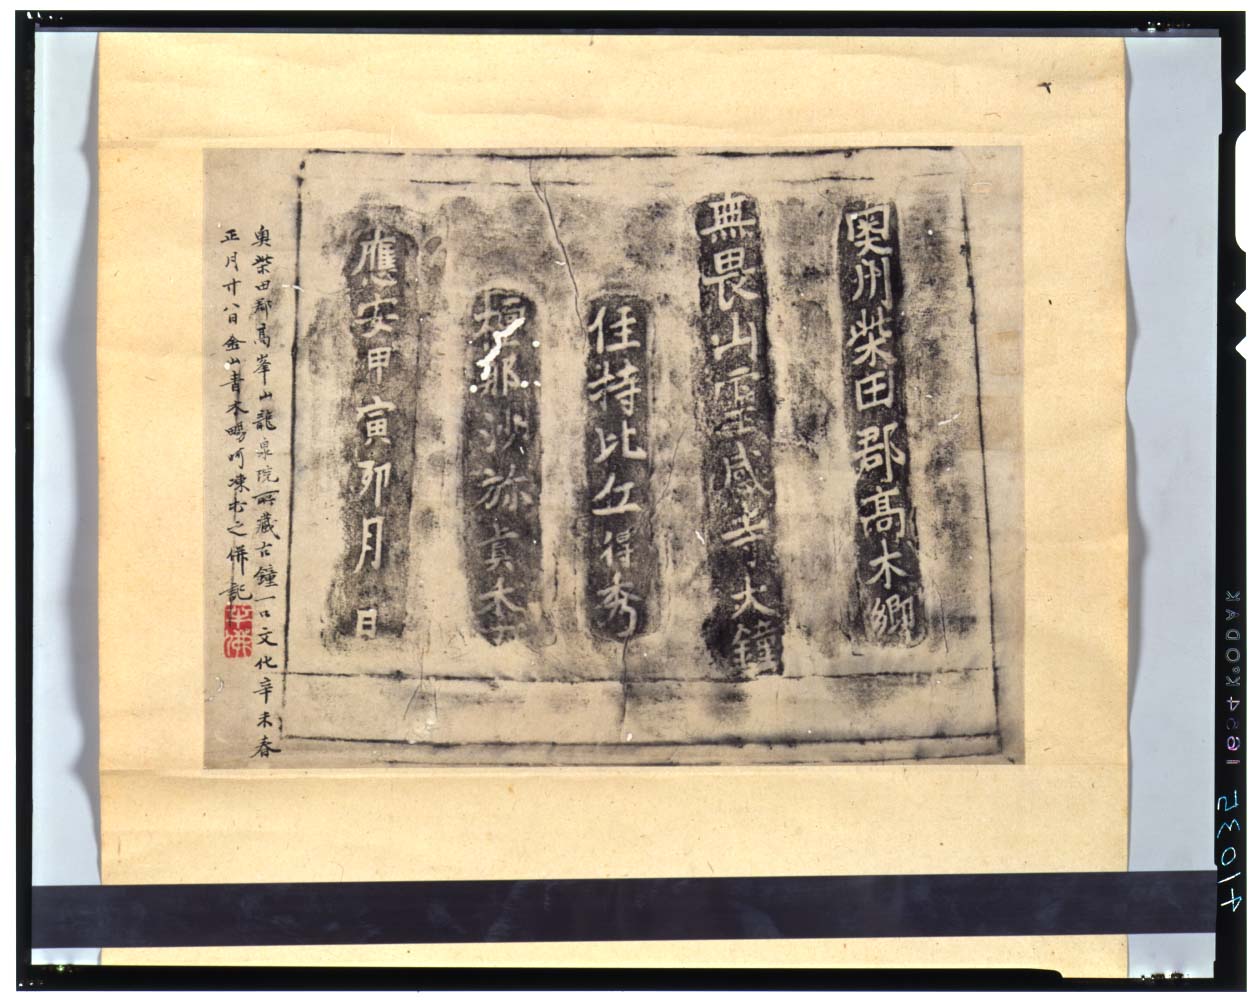 奥州柴田郡髙木郷
無畏山霊感寺大鐘
住持比丘得秀
檀那沙弥真本
應安甲寅卯月 日
奥柴田郡髙峯山龍泉院所藏古鐘一口文化辛未春
正月廿八日金山青木 呵凍 之併記
KODAK
1694
41035